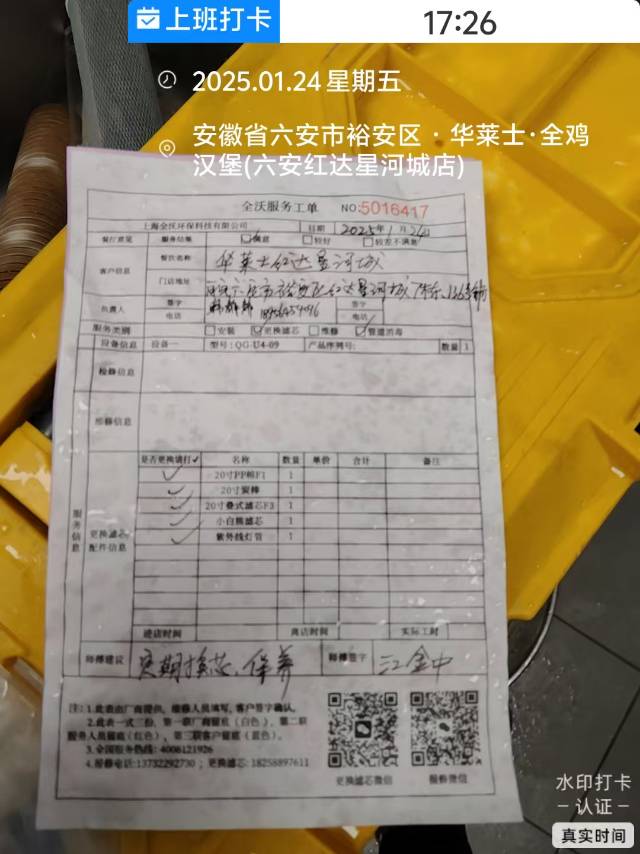 上班打卡
17:26
2025.01.24 星期五
安徽省六安市裕安区 · 华莱士·全鸡
汉堡(六安红达星河城店)
全沃服务工单 NO:5016417
上海全沃环保科技有限公司 日期 2025年1月24日
餐厅意见 服务结果 ☑满意 □较好 □较差不满意
客户信息 餐饮名称 华莱士红达星河城
门店地址
负责人 签字 签字
电话 电话
服务类别 □安装 ☑更换滤芯 □维修 ☑管道消毒
设备信息 设备一 型号:QG-U4-09 产品序列号: 数量 1
检修信息
维修信息
服务信息 更换滤芯配件信息
是否更换请打✓ 名称 数量 单价 合计 备注
✓ 20寸PP棉F1 1
✓ 20寸炭棒 1
✓ 20寸叠式滤芯F3 1
✓ 小白熊滤芯 1
✓ 紫外线灯管 1
进店时间 离店时间 实际工时
师傅建议 定期换芯、保养 师傅签字 江金中
注:1.此表由厂商提供,维修人员填写,客户签字确认。
2.此表一式三份,第一联厂商留底(白色),第二联
服务人员留底(红色),第三联客户留底(蓝色)。
3.全国服务热线:4006121926
4.报修电话:13732292730;更换滤芯:18258897611
更换滤芯微信 报修微信
水印打卡
认证
真实时间